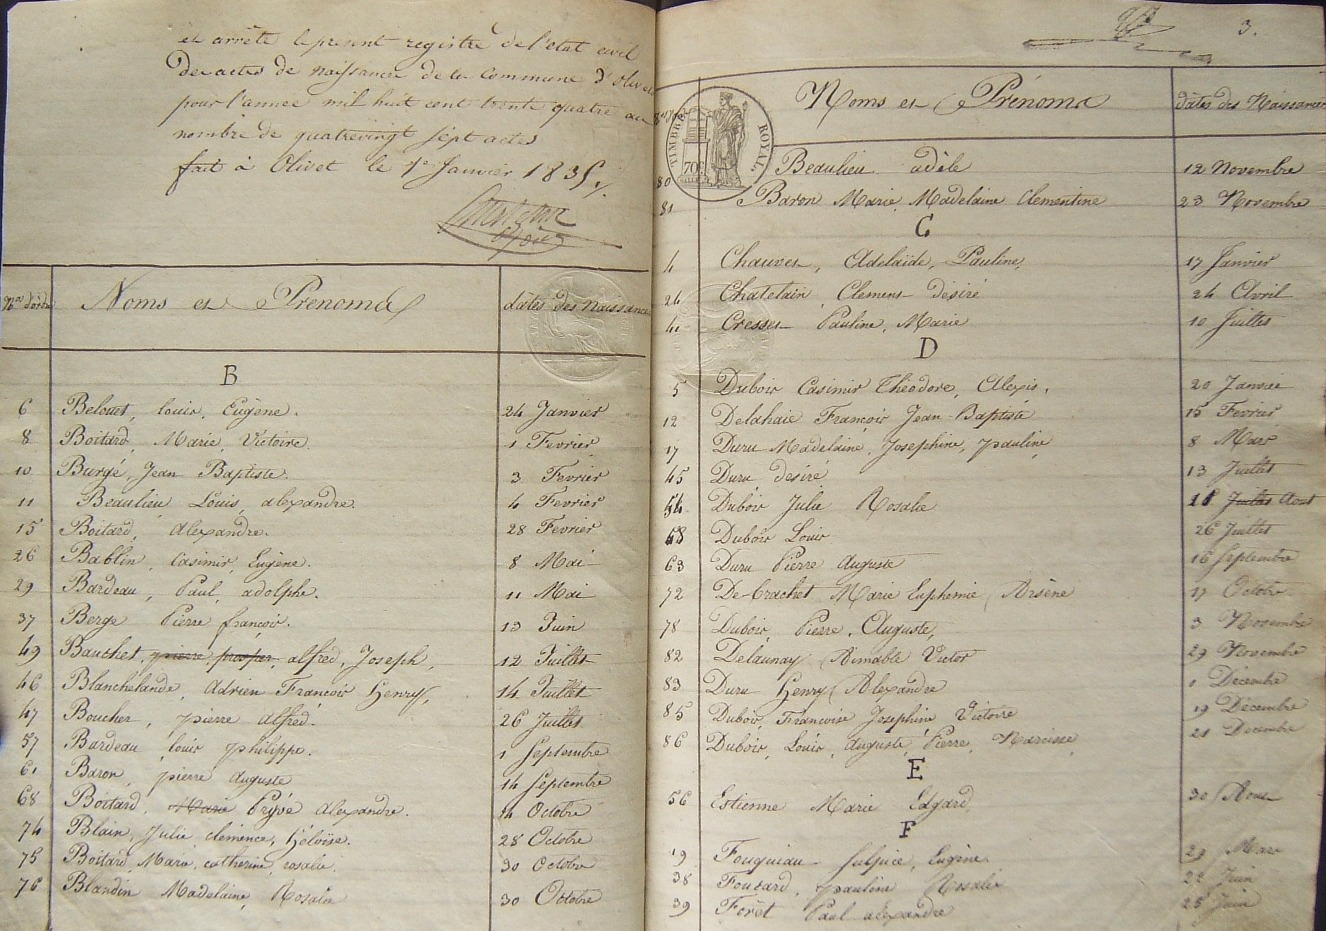 et arrêté le présent registre de l'état civil
des actes de Naissance de la Commune d'Olivet
pour l'année mil huit cent trente quatre au
nombre de quatrevingt sept actes
fait à Olivet le 1er Janvier 1835.
Nos d'ordre Noms et Prénoms dates des Naissances
B
6 Belouet, louis, Eugène. 24 Janvier
8 Boitard, Marie, Victoire 1 Fevrier
10 Burgé, Jean Baptiste. 3 Fevrier
11 Beaulieu Louis, alexandre. 4 Fevrier
15 Boitard, Alexandre. 28 Fevrier
26 Bablin, Casimir, Eugène. 8 Mai
29 Bardeau, Paul, adolphe. 11 Mai
37 Berge Pierre françois. 13 Juin
49 Bauchet, pierre, prosper, alfred, Joseph, 12 Juillet
46 Blanchelande, Adrien François Henry, 14 Juillet
47 Boucher, pierre alfred. 26 Juillet
57 Bardeau, louis philippe. 1 Septembre
61 Baron, pierre auguste 14 Septembre
68 Boitard, Marie alexandre. 14 Octobre
74 Blain, Julie clemence, héloïse. 28 Octobre
75 Boitard, Marie, catherine, rosalie. 30 Octobre
76 Blandin Madelaine, Rosalie 30 Octobre
3.
Noms et Prénoms dates des Naissances
TIMBRE ROYAL
70c
80 Beaulieu adèle 12 Novembre
81 Baron Marie, Madelaine Clementine 23 Novembre
C
4 Chauvet, Adelaïde, Pauline, 17 Janvier
24 Chatelain, Clement désiré 24 Avril
41 Cresset Pauline, Marie 10 Juillet
D
5 Dubois Casimir Théodore, Alexis. 20 Janvier
12 Delahaie François Jean-Baptiste 15 Fevrier
17 Duru Madelaine, Josephine, pauline, 8 Mars
45 Duru, desiré 13 Juillet
54 Dubois Julie Rosalie 11 Juillet Aout
48 Dubois Louis 26 Juillet
63 Duru Pierre Auguste 16 Septembre
72 De Crachet Marie Euphemie, Arsène 17 Octobre
78 Dubois, Pierre, Auguste, 3 Novembre
82 Delaunay Aimable Victor 29 Novembre
83 Duru Henry Alexandre 1 Décembre
85 Dubois, Francoise Josephine Victoire 19 Décembre
86 Dubois, Louis, auguste Pierre, Narcisse 21 Decembre
E
56 Estienne Marie Edgard 30 Aout
F
19 Fougueau Sulpice, Eugène 29 Mars
38 Foucard, pauline Rosalie 22 Juin
39 Forêt Paul alexandre 25 Juin